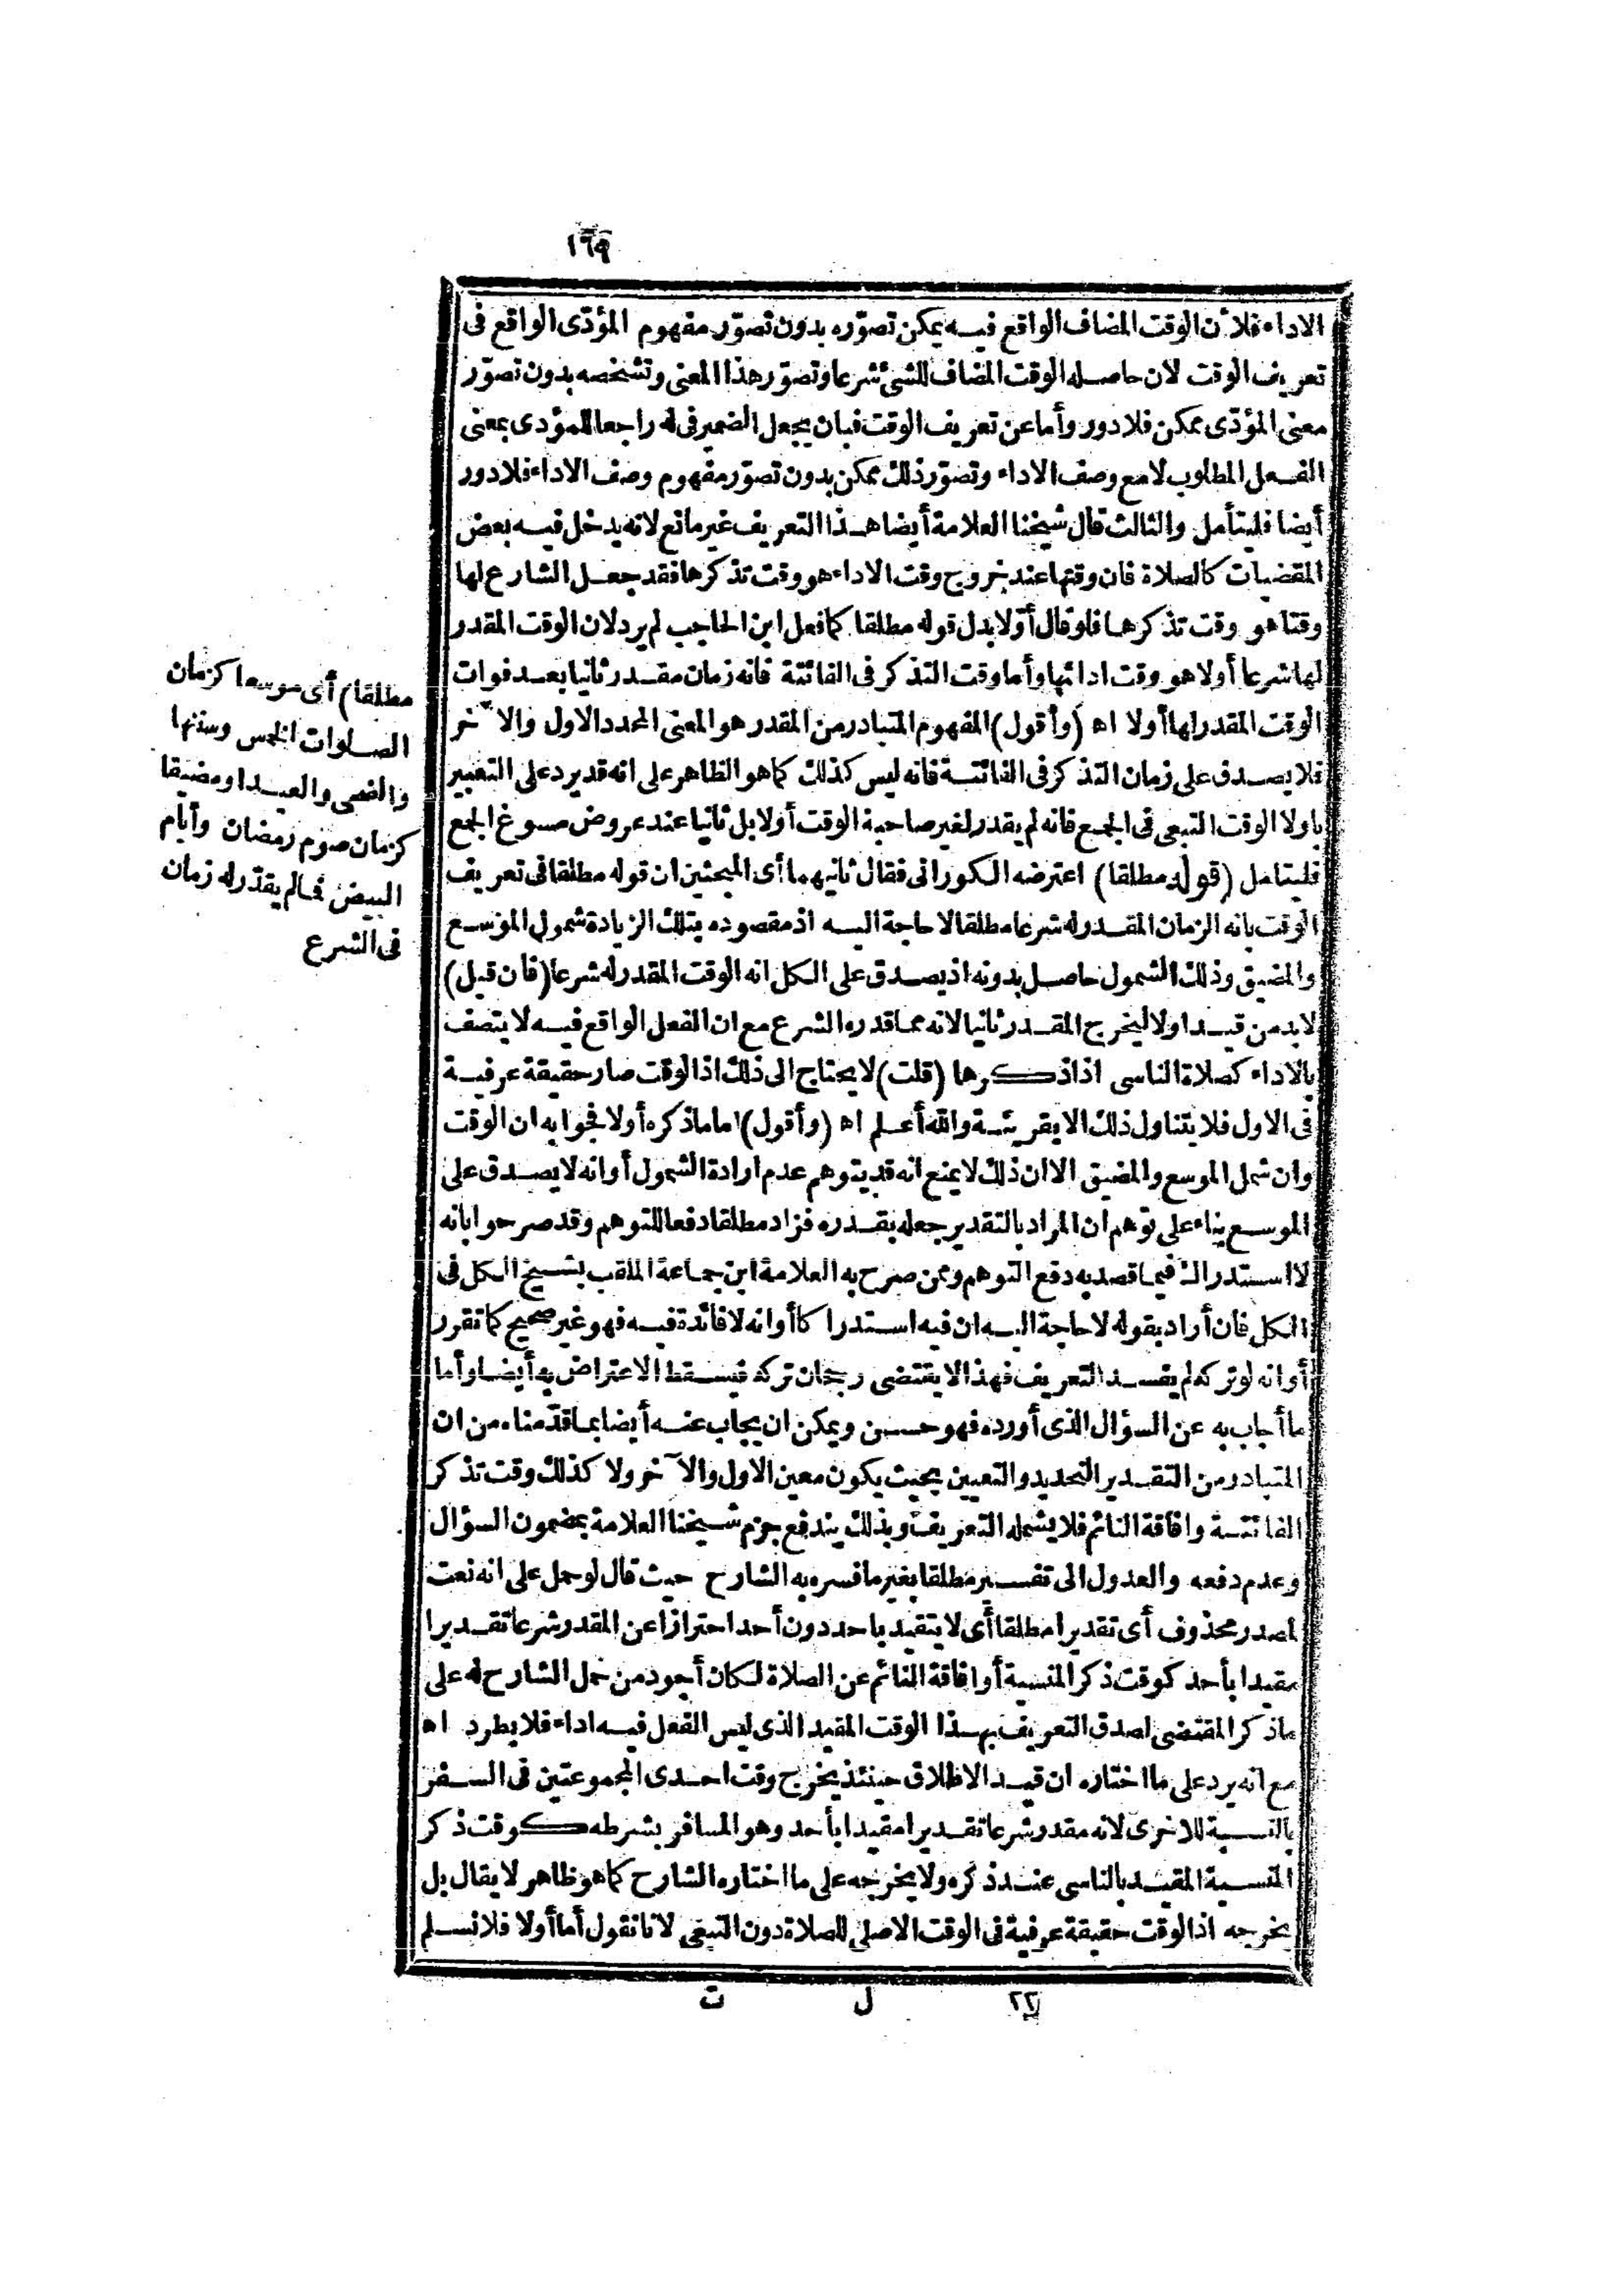 ١٦٩
الاداء فلأن الوقت المضاف الواقع فيه يمكن تصوّره بدون تصوّر مفهوم المؤدّى الواقع فى
تعريف الوقت لان حاصله الوقت المضاف للشئ شرعا وتصوّر هذا المعنى وتشخصه بدون تصوّر
معنى المؤدّى ممكن فلا دور وأما عن تعريف الوقت فبان يجعل الضمير فى له راجعا للمؤدى بمعنى
الفعل المطلوب لا مع وصف الاداء وتصوّر ذلك ممكن بدون تصوّر مفهوم وصف الاداء فلا دور
أيضا فليتأمل والثالث قال شيخنا العلامة أيضا هذا التعريف غير مانع لانه يدخل فيه بعض
المقضيات كالصلاة فان وقتها عند خروج وقت الاداء هو وقت تذكرها فقد جعل الشارع لها
وقتا هو وقت تذكرها فلو قال أوّلا بدل قوله مطلقا كما فعل ابن الحاجب لم يرد لان الوقت المقدر
لها شرعا أولا هو وقت ادائها وأما وقت التذكر فى الفائتة فانه زمان مقدر ثانيا بعد فوات
الوقت المقدر لها أولا اه (وأقول) المفهوم المتبادر من المقدر هو المعنى المحدد الاول والآخر
فلا يصدق على زمان التذكر فى الفائتة فانه ليس كذلك كما هو الظاهر على انه قد يرد على التعبير
باولا الوقت التبعى فى الجمع فانه لم يقدر لغير صاحبة الوقت أولا بل ثانيا عند عروض مسوغ الجمع
فليتامل (قوله مطلقا) اعترضه الكورانى فقال ثانيهما أى المبحثين ان قوله مطلقا فى تعريف
الوقت بانه الزمان المقدر له شرعا مطلقا لا حاجة اليه اذ مقصوده بتلك الزيادة شمول الموسع
والمضيق وذلك الشمول حاصل بدونه اذ يصدق على الكل انه الوقت المقدر له شرعا (فان قيل)
لا بد من قيد اولا ليخرج المقدر ثانيا لانه مما قدره الشرع مع ان الفعل الواقع فيه لا يتصف
بالاداء كصلاة الناسى اذا ذكرها (قلت) لا يحتاج الى ذلك اذ الوقت صار حقيقة عرفية
فى الاول فلا يتناول ذلك الا بقرينة والله أعلم اه (وأقول) اما ما ذكره أولا فجوابه ان الوقت
وان شمل الموسع والمضيق الا ان ذلك لا يمنع انه قد يتوهم عدم ارادة الشمول أو انه لا يصدق على
الموسع بناء على توهم ان المراد بالتقدير جعله بقدره فزاد مطلقا دفعا للتوهم وقد صرحوا بانه
لا استدراك فيما قصد به دفع التوهم وممن صرح به العلامة ابن جماعة الملقب بشيخ الكل فى
الكل فان أراد بقوله لا حاجة اليه ان فيه استدراكا أو انه لا فائدة فيه فهو غير صحيح كما تقرر
أو انه لو تركه لم يفسد التعريف فهذا لا يقتضى رجحان تركه فيسقط الاعتراض به أيضا وأما
ما أجاب به عن السؤال الذى أورده فهو حسن ويمكن ان يجاب عنه أيضا بما قدّمناه من ان
المتبادر من التقدير التحديد والتعيين بحيث يكون معين الاول والآخر ولا كذلك وقت تذكر
الفائتة وافاقة النائم فلا يشمله التعريف وبذلك يندفع جزم شيخنا العلامة بمضمون السؤال
وعدم دفعه والعدول الى تفسير مطلقا بغير ما فسره به الشارح حيث قال لو حمل على انه نعت
لمصدر محذوف أى تقديرا مطلقا أى لا يتقيد باحد دون أحد احترازا عن المقدر شرعا تقديرا
مقيدا بأحد كوقت ذكر المنسية أو افاقة النائم عن الصلاة لكان أجود من حمل الشارح له على
ما ذكر المقتضى لصدق التعريف بهذا الوقت المقيد الذى ليس الفعل فيه اداء فلا يطرد اه
مع انه يرد على ما اختاره ان قيد الاطلاق حينئذ يخرج وقت احدى المجموعتين فى السفر
بالنسبة للاخرى لانه مقدر شرعا تقديرا مقيدا بأحد وهو المسافر بشرطه كوقت ذكر
المنسية المقيد بالناسى عند ذكره ولا يخرجه على ما اختاره الشارح كما هو ظاهر لا يقال بل
يخرجه اذ الوقت حقيقة عرفية فى الوقت الاصلى للصلاة دون التبعى لانا نقول أما أولا فلا نسلم
مطلقا) أى موسعا كزمان
الصلوات الخمس وسننها
والضحى والعيد او مضيقا
كزمان صوم رمضان وأيام
البيض فما لم يقدّر له زمان
فى الشرع
٢٢ ل ت